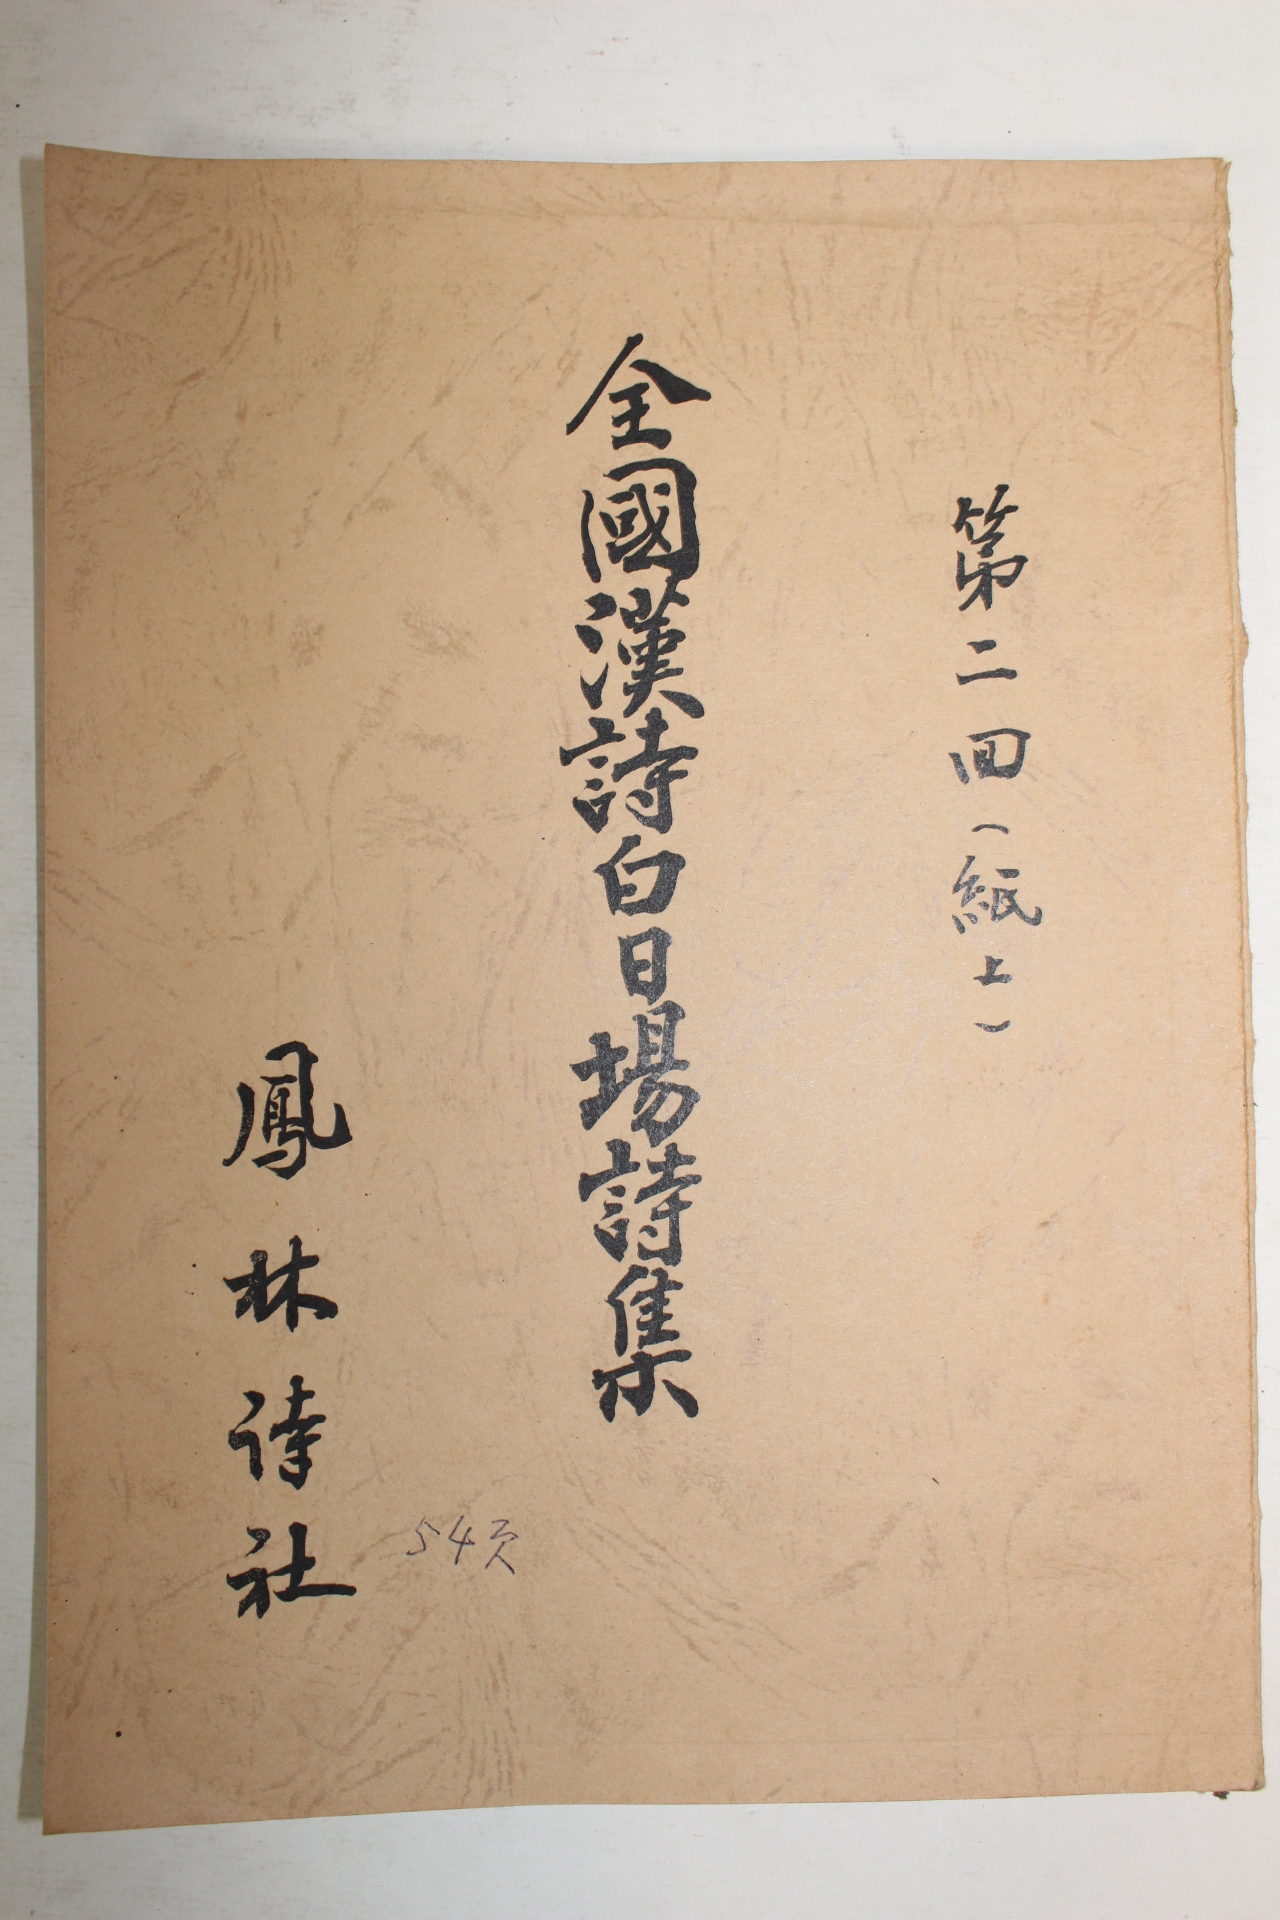 第二回(紙上)
全國漢詩白日場詩集
鳳林诗社
54页